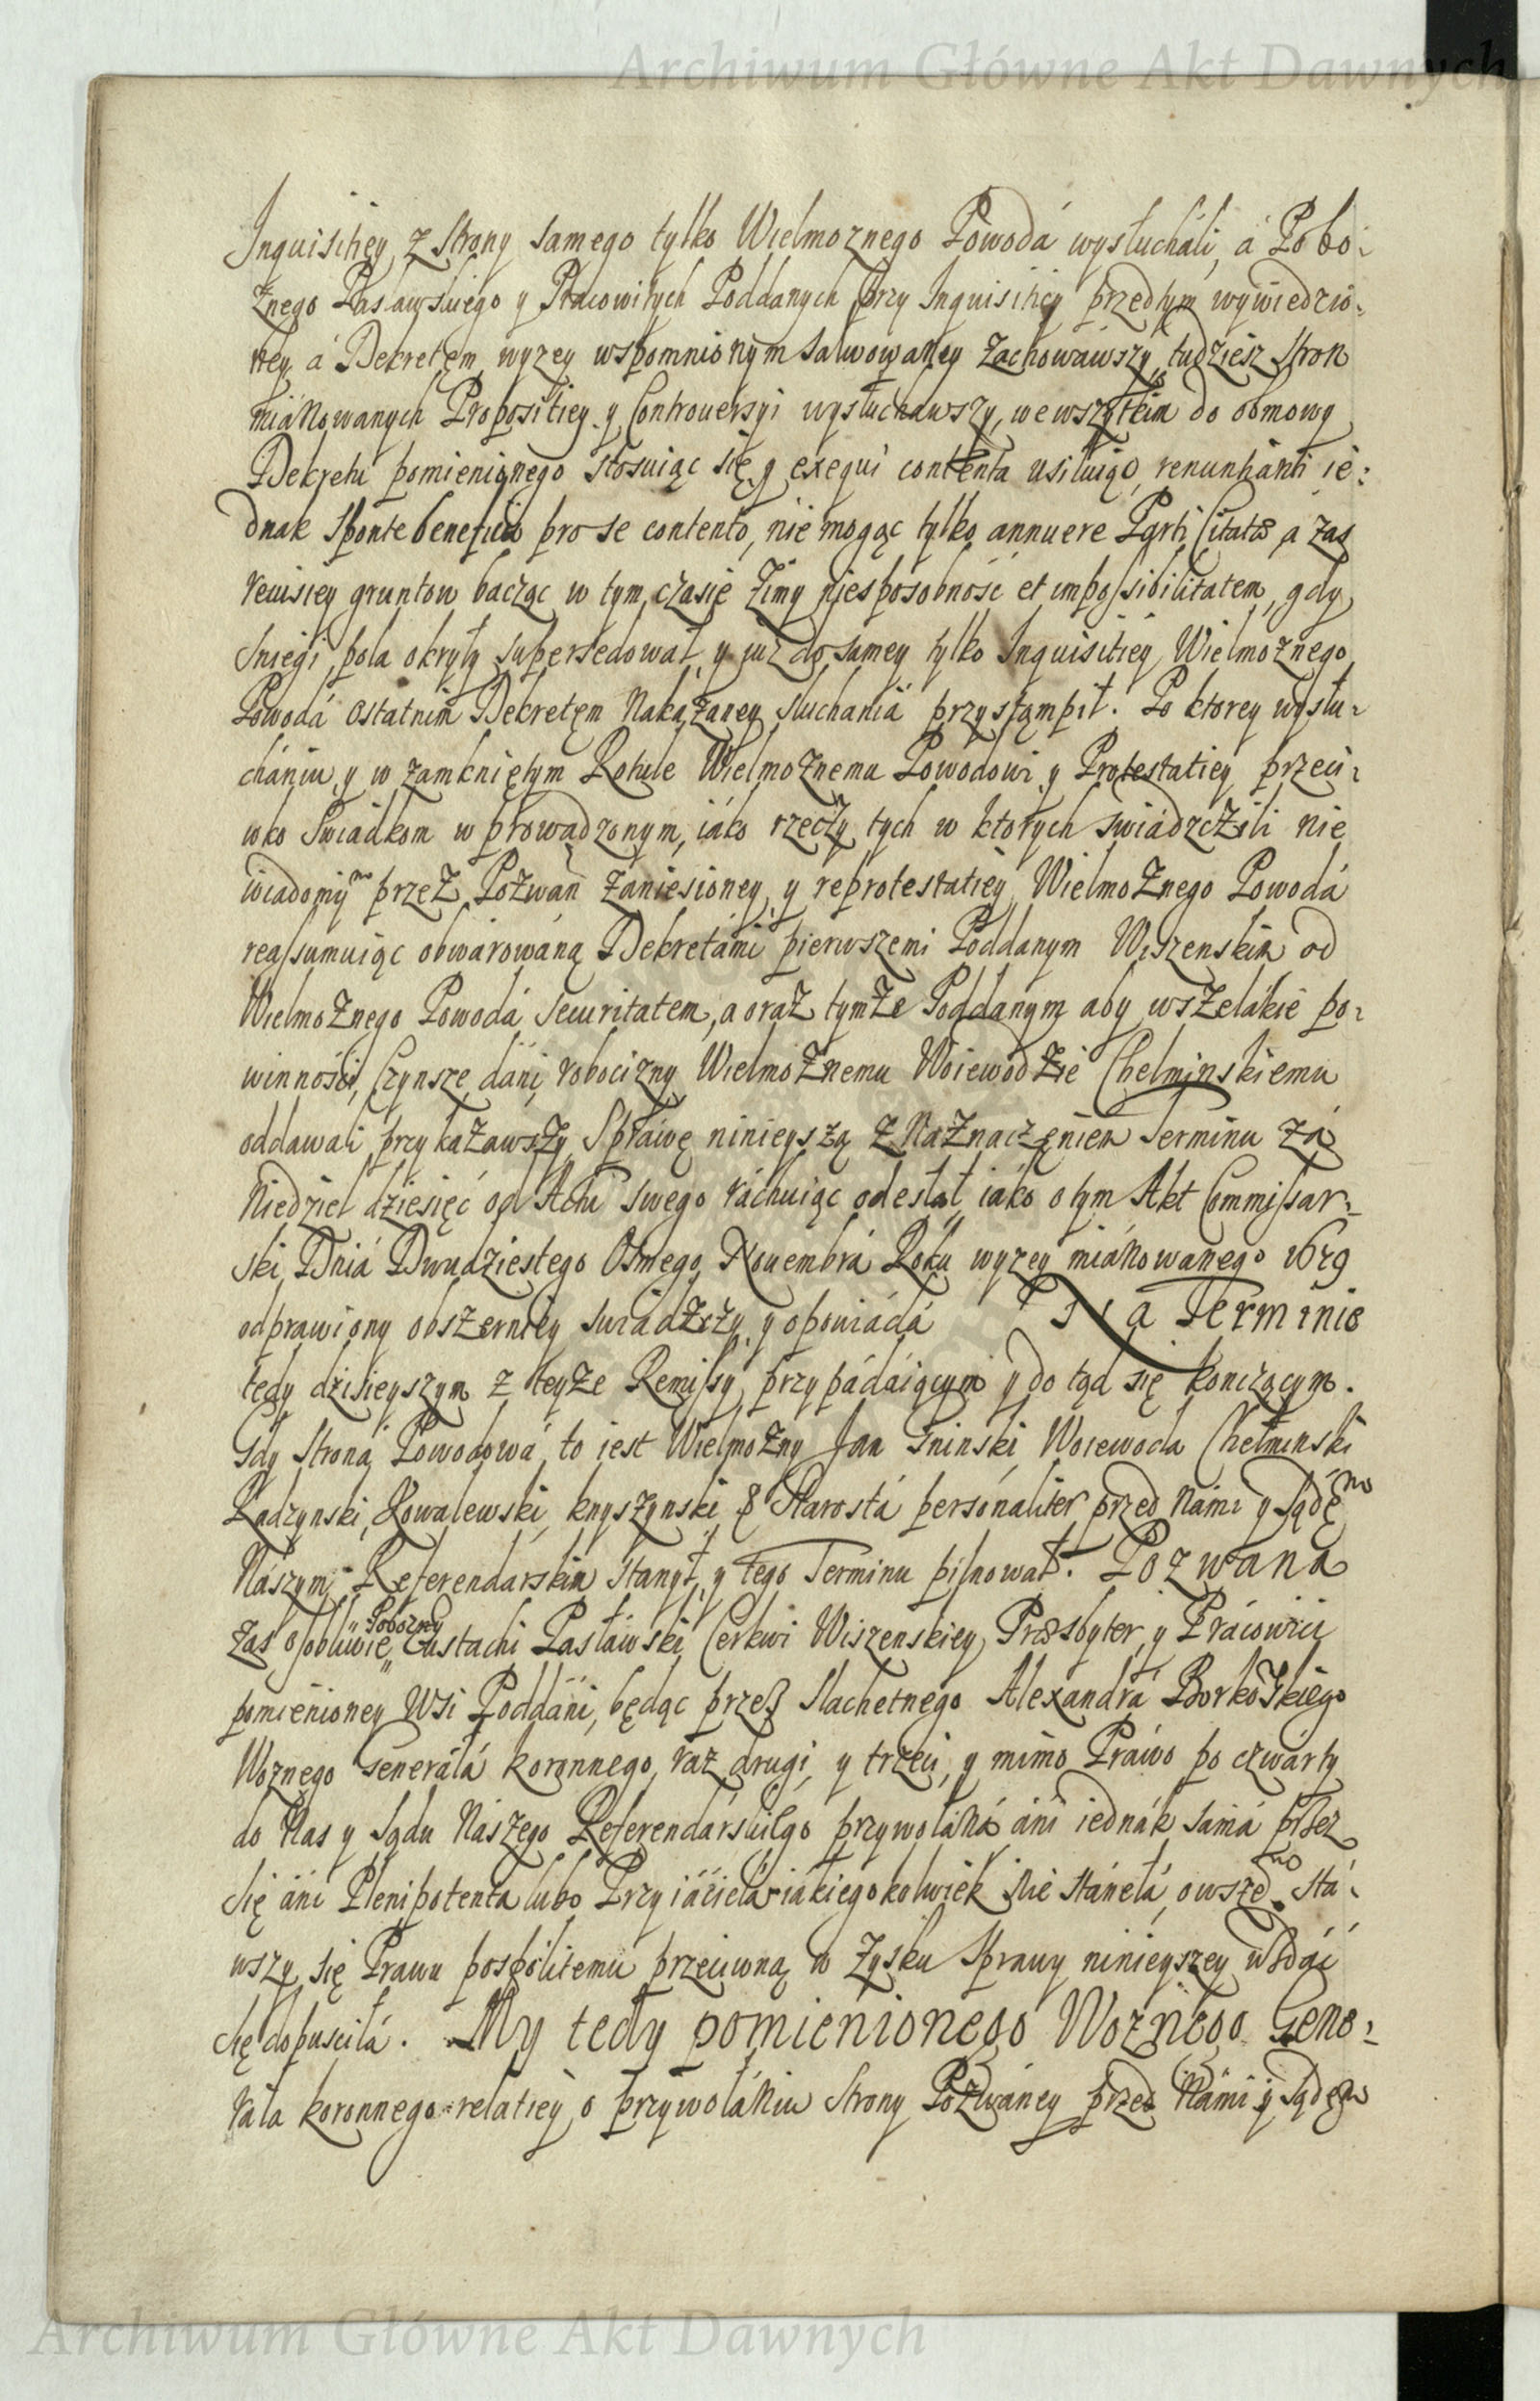 Archiwum Główne Akt Dawnych
Inquisitiey z strony samego tylko Wielmoznego Powodá wysłucháli, á Pobo-
żnego Pasławskiego y Pracowitych Poddanych przy Inquisitiey przedtym wywiedzio-
ney á Dekretem wyzey wspomnionym salwowaney zachowáwszy, tudziesz stron
miánowanych Propositiey y Controuersyi wysłuchawszy, we wszytkim do obmowy
Dekretu pomienionego stosuiąc się y exequi contenta usiłuiąc, renuntianti ie-
dnak sponte beneficio pro se contento, nie mogąc tylko annuere Parti Citatæ á zas
reuisiey gruntow bacząc w tym czasie zimy niesposobność et impossibilitatem, gdy
sniegi pola okryły supersedował y już do samey tylko Inquisitiey Wielmożnego
Powodá ostatnim Dekretem nakazaney słuchania przystąmpił. Po ktorey wysłu-
chániu y w zamkniętym Rotule Wielmożnemu Powodowi y Protestatiey przeci-
wko Swiadkom wprowadzonym, iáko rzeczy tych w ktorych swiádzczyli nie
wiadomym przez Pozwaną zaniesioney y reprotestatiey Wielmożnego Powodá
reassumuiąc obwárowáną Dekretámi pierwszemi Poddanym Wiszenskim od
Wielmożnego Powodá securitatem, a oraz tymże Poddanym aby wszelákie po-
winności, Czynsze, dáni, robocizny Wielmożnemu Woiewodzie Chelminskiemu
oddawali przykazawszy Spráwę ninieyszą z naznaczeniem Terminu zá
Niedziel dziesięć od Actu swego ráchuiąc odesłał, iáko o tym Akt Commissar-
ski Dniá Dwudziestego Osmego Nouembrá Roku wyzey miánowanego 1679
odprawiony obszerniey swiádzczy y opowiádá Na Terminie
tedy dzisieyszym z teyże Remissy przypádáiącym y do tąd się konczącym.
Gdy Strona Powodowa to iest Wielmożny Jan Gninski Woiewoda Chełminski
Radzynski, Kowalewski, knyszynski & Starostá personaliter przed Námi y Sądem
Nászym Referendarskim stanął, y tego Terminu pilnował. Pozwana
zas osobliwie Pobożny Eustachi Pasławski Cerkwi Wiszenskiey Præsbyter y Prácowici
pomienioney Wsi Poddáni, będąc przez Slachetnego Alexandrá Borkowskiego
Woznego Generałá koronnego, raz drugi, y trzeci, y mimo Práwo po czwárty
do Nas y Sądu Nászego Referendárskiego przywołána áni iednák samá przez
się áni Plenipotenta lubo Przyiacielá iákiegokolwiek nie stánełá, owszem stá-
wszy się Prawu pospolitemu przeciwną w zysku Sprawy ninieyszey wzdáć
się dopuściłá. My tedy pomienionego Woznego Gene-
rała koronnego relatiey o przywołániu Strony Pozwáney przed Námi y Sądem
Archiwum Główne Akt Dawnych